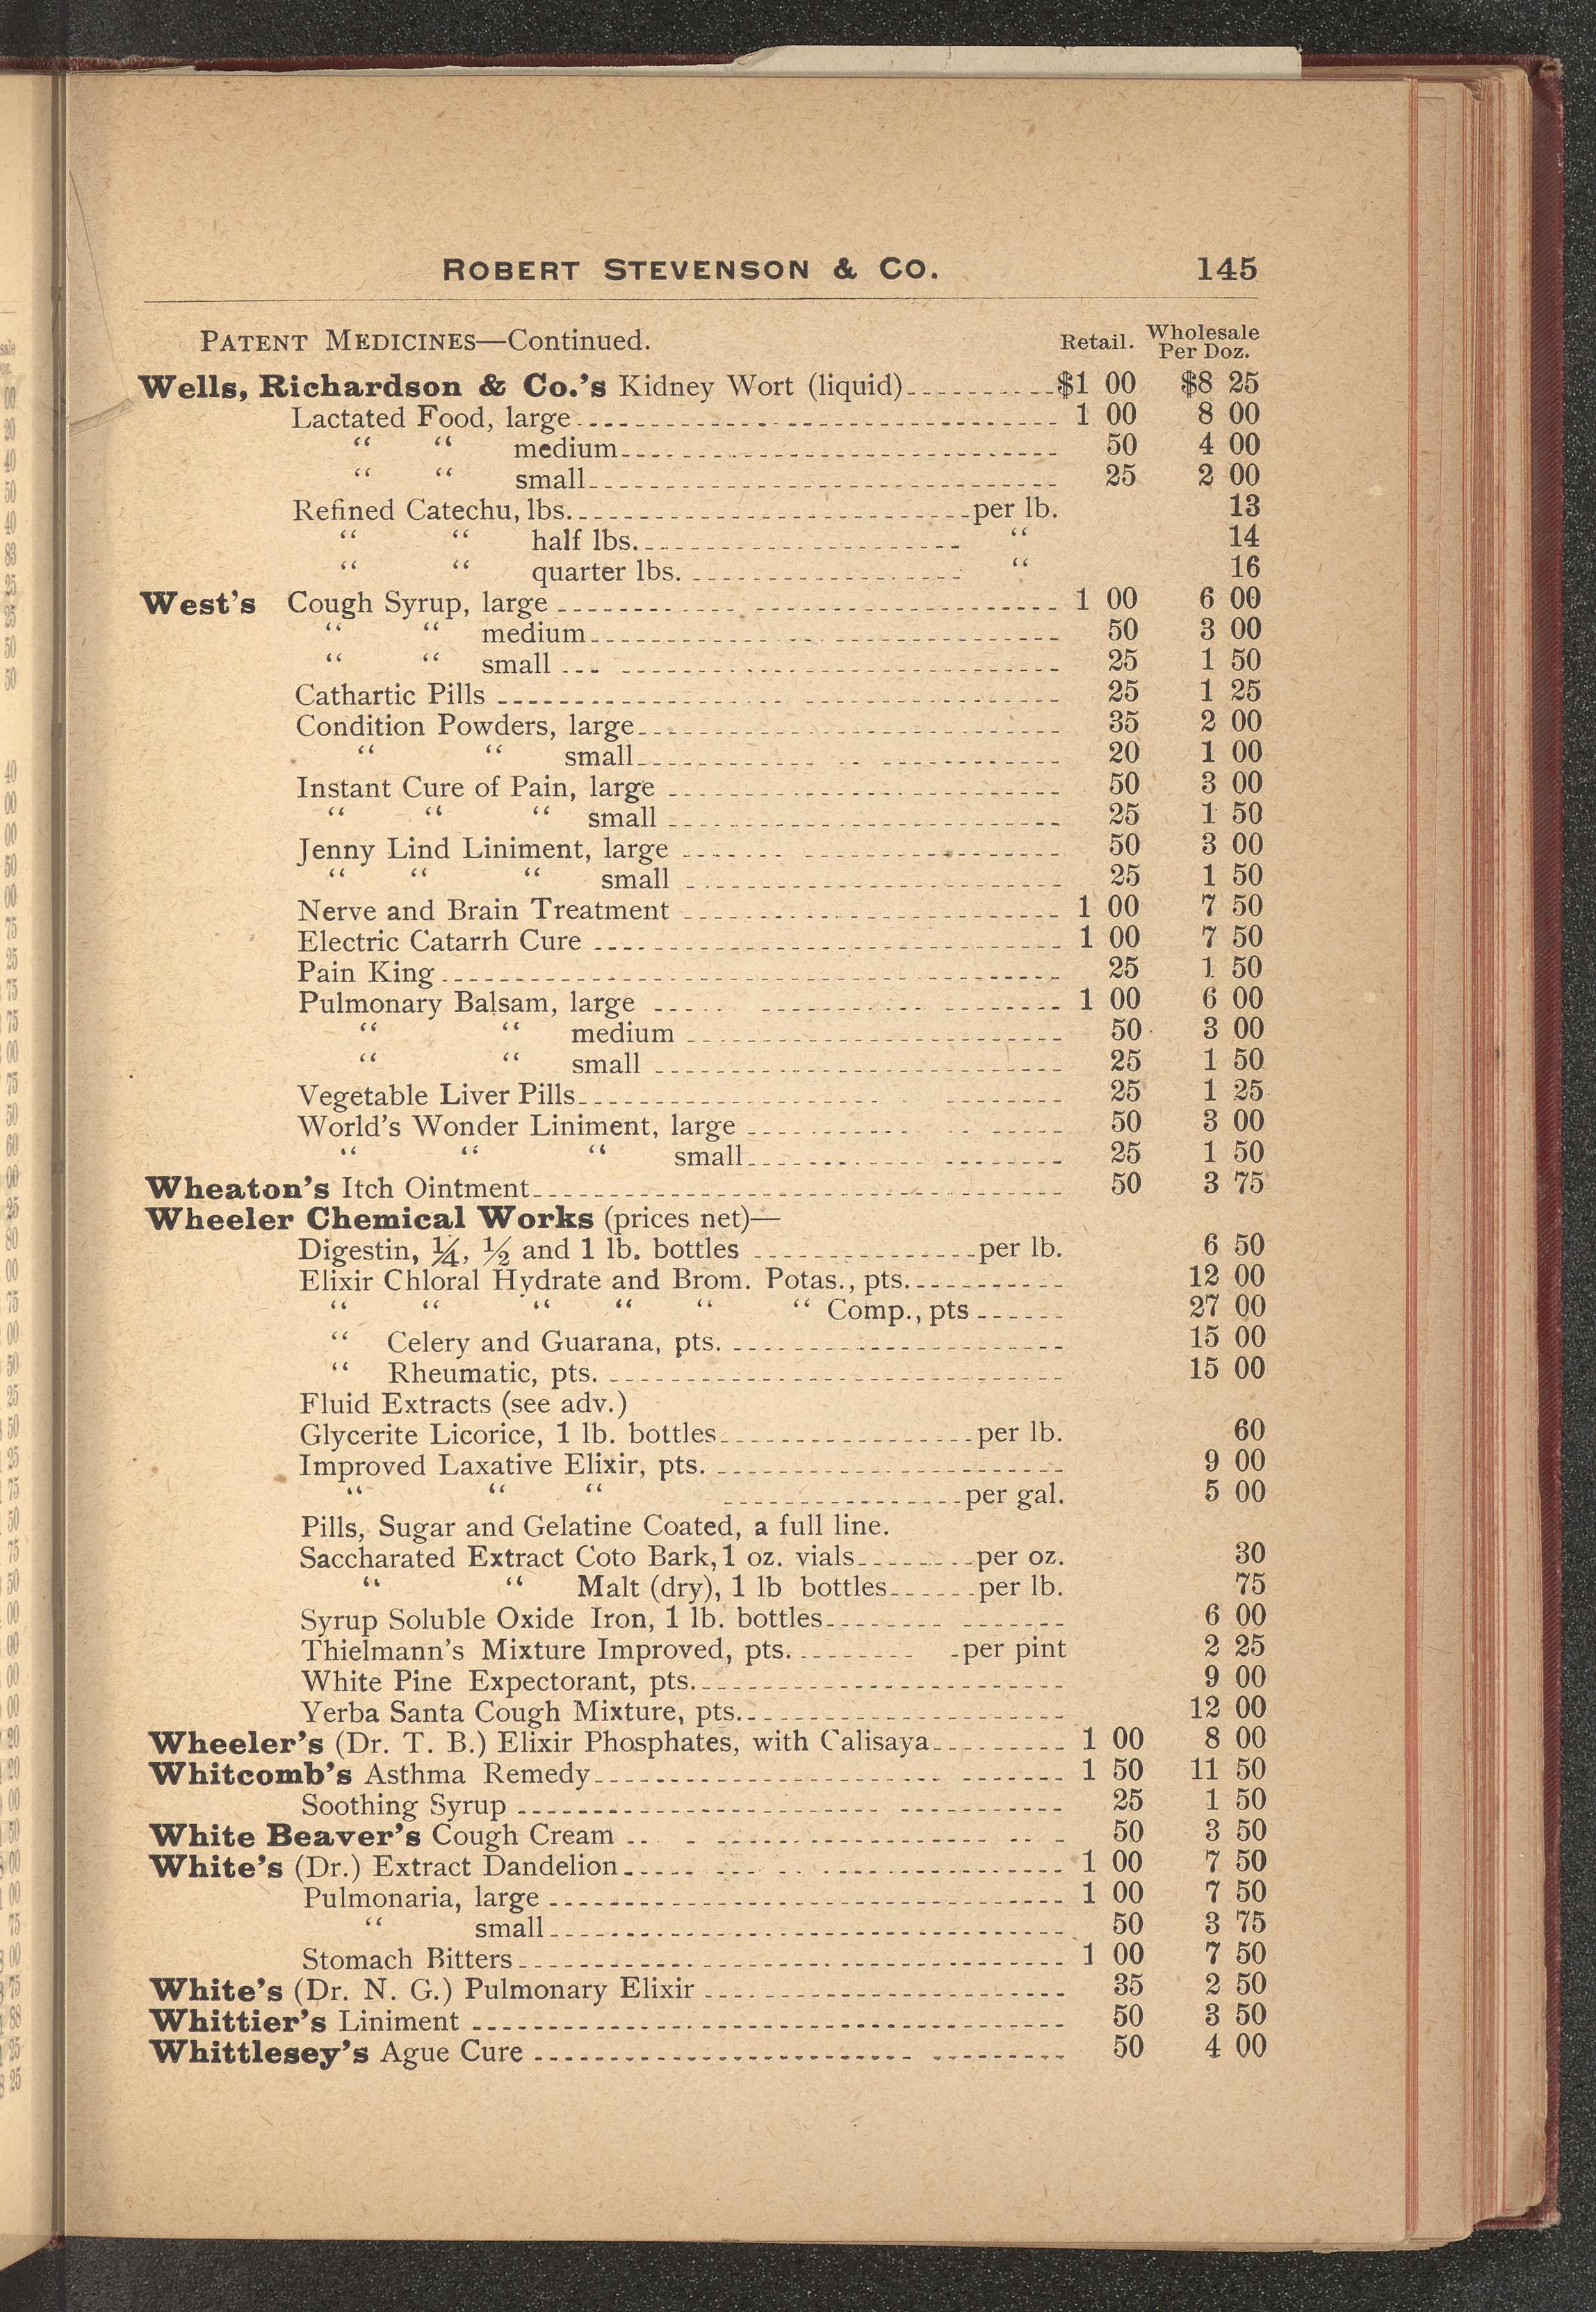 ROBERT STEVENSON & CO. 145
PATENT MEDICINES—Continued. Retail. Wholesale Per Doz.
Wells, Richardson & Co.'s Kidney Wort (liquid) $1 00 $8 25
Lactated Food, large 1 00 8 00
“ “ medium 50 4 00
“ “ small 25 2 00
Refined Catechu, lbs. per lb. 13
“ “ half lbs. “ 14
“ “ quarter lbs. “ 16
West's Cough Syrup, large 1 00 6 00
“ “ medium 50 3 00
“ “ small 25 1 50
Cathartic Pills 25 1 25
Condition Powders, large 35 2 00
“ “ small 20 1 00
Instant Cure of Pain, large 50 3 00
“ “ “ small 25 1 50
Jenny Lind Liniment, large 50 3 00
“ “ “ small 25 1 50
Nerve and Brain Treatment 1 00 7 50
Electric Catarrh Cure 1 00 7 50
Pain King 25 1 50
Pulmonary Balsam, large 1 00 6 00
“ “ medium 50 3 00
“ “ small 25 1 50
Vegetable Liver Pills 25 1 25
World's Wonder Liniment, large 50 3 00
“ “ “ small 25 1 50
Wheaton's Itch Ointment 50 3 75
Wheeler Chemical Works (prices net)—
Digestin, ¼, ½ and 1 lb. bottles per lb. 6 50
Elixir Chloral Hydrate and Brom. Potas., pts. 12 00
“ “ “ “ “ “ Comp., pts 27 00
“ Celery and Guarana, pts. 15 00
“ Rheumatic, pts. 15 00
Fluid Extracts (see adv.)
Glycerite Licorice, 1 lb. bottles per lb. 60
Improved Laxative Elixir, pts. 9 00
“ “ “ per gal. 5 00
Pills, Sugar and Gelatine Coated, a full line.
Saccharated Extract Coto Bark, 1 oz. vials per oz. 30
“ “ Malt (dry), 1 lb bottles per lb. 75
Syrup Soluble Oxide Iron, 1 lb. bottles 6 00
Thielmann's Mixture Improved, pts. per pint 2 25
White Pine Expectorant, pts. 9 00
Yerba Santa Cough Mixture, pts. 12 00
Wheeler's (Dr. T. B.) Elixir Phosphates, with Calisaya 1 00 8 00
Whitcomb's Asthma Remedy 1 50 11 50
Soothing Syrup 25 1 50
White Beaver's Cough Cream 50 3 50
White's (Dr.) Extract Dandelion 1 00 7 50
Pulmonaria, large 1 00 7 50
“ small 50 3 75
Stomach Bitters 1 00 7 50
White's (Dr. N. G.) Pulmonary Elixir 35 2 50
Whittier's Liniment 50 3 50
Whittlesey's Ague Cure 50 4 00